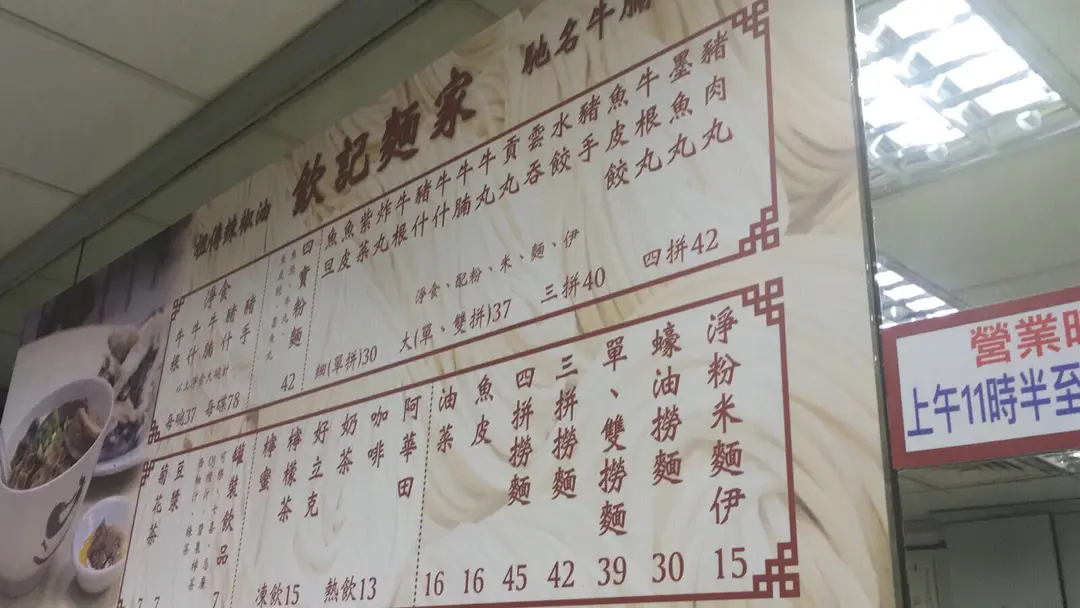 馳名牛腩
欽記麵家
祖傳辣椒油
豬肉丸
墨魚丸
牛根丸
魚皮餃
豬手
水餃
雲吞
貢丸
牛丸
牛腩
牛什
豬什
牛根
炸丸
紫菜
魚皮
魚旦
淨食、配粉、米、麵、伊
細(單拼)30
大(單、雙拼)37
三拼40
四拼42
四寶粉麵
42
淨食
豬手
豬什
牛腩
牛什
牛根
以上淨食大碗計
每碗37 每碟78
淨粉米麵伊 15
蠔油撈麵 30
單、雙撈麵 39
三拼撈麵 42
四拼撈麵 45
魚皮 16
油菜 16
阿華田
咖啡
奶茶
好立克
檸檬茶
檸蜜
凍飲15 熱飲13
罐裝飲品 7
豆漿 7
菊花茶 7
營業時
上午11時半至